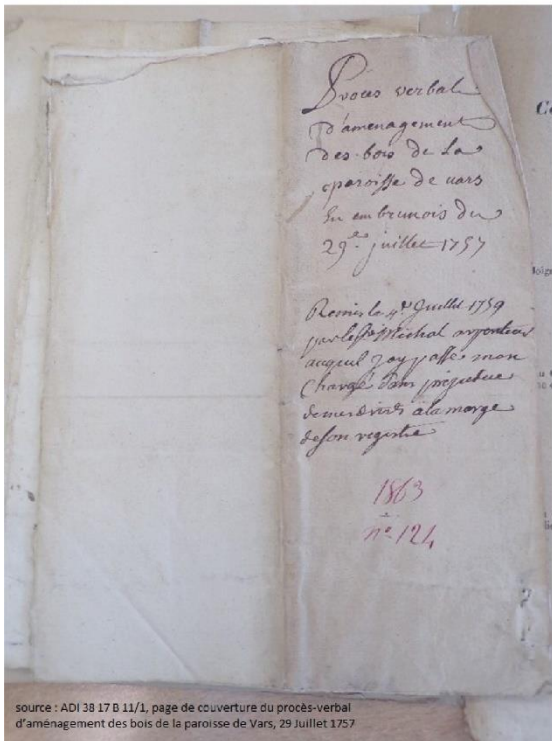 Procès verbal
d'amenagement
des bois de La
paroisse de vars
En embrunois du
29e juillet 1757
Remis le 4e Juillet 1759
par le Sr Michal
auquel jay passé mon
Chargé Sans prejudice
de mes droits a la marge
de son registre
1863
no. 124
source : ADI 38 17 B 11/1, page de couverture du procès-verbal
d'aménagement des bois de la paroisse de Vars, 29 Juillet 1757